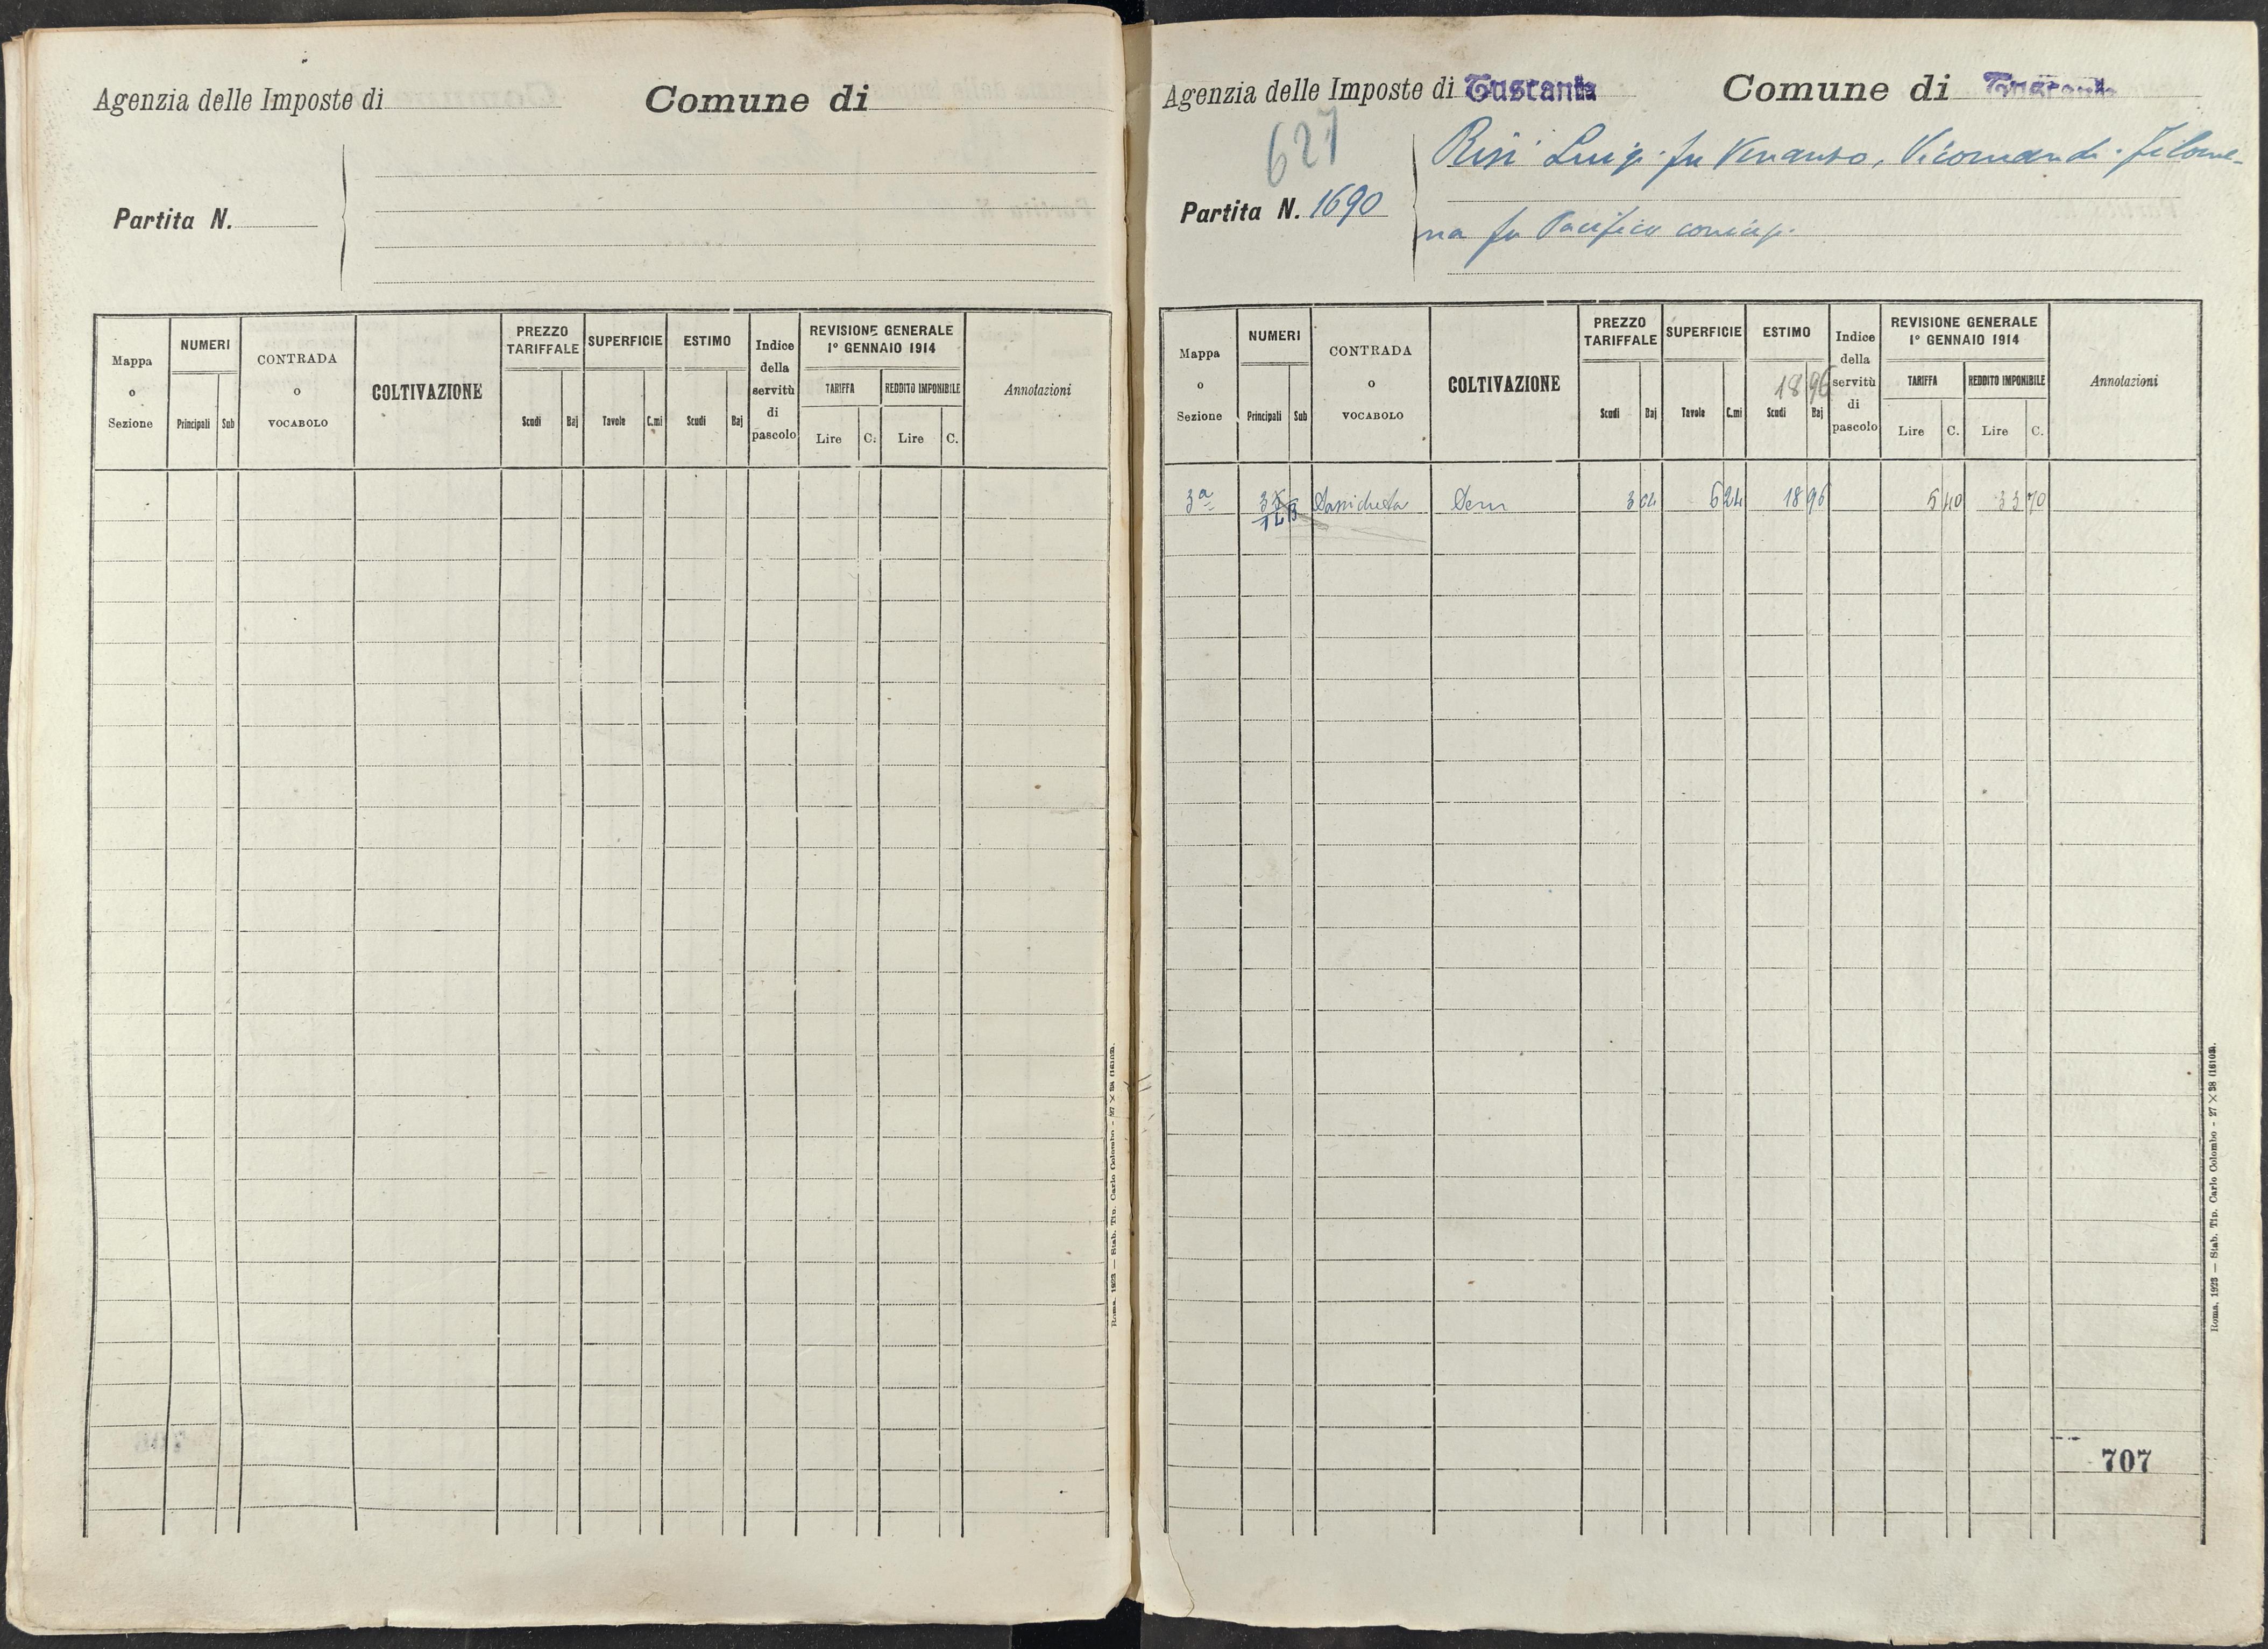 Agenzia delle Imposte di
Comune di
Partita N.
Mappa o Sezione
NUMERI
Principali
Sub
CONTRADA o VOCABOLO
COLTIVAZIONE
PREZZO TARIFFALE
Scudi
Baj
SUPERFICIE
Tavole
C.mi
ESTIMO
Scudi
Baj
Indice della servitù di pascolo
REVISIONE GENERALE
1° GENNAIO 1914
TARIFFA
REDDITO IMPONIBILE
Lire
C.
Lire
C.
Annotazioni
Roma, 1923 — Stab. Tip. Carlo Colombo - 27 × 38 (16103).
Agenzia delle Imposte di Tuscania
Comune di Tuscania
627
Risi Luigi fu Venanzo, Vicomandi Filome-
Partita N. 1690
na fu Pacifico coniugi
Mappa o Sezione
NUMERI
Principali
Sub
CONTRADA o VOCABOLO
COLTIVAZIONE
PREZZO TARIFFALE
Scudi
Baj
SUPERFICIE
Tavole
C.mi
ESTIMO
18 96
Scudi
Baj
Indice della servitù di pascolo
REVISIONE GENERALE
1° GENNAIO 1914
TARIFFA
REDDITO IMPONIBILE
Lire
C.
Lire
C.
Annotazioni
3ª 3 04 6 24 18 96 5 40 33 70
707
Roma, 1923 — Stab. Tip. Carlo Colombo - 27 × 38 (16103).